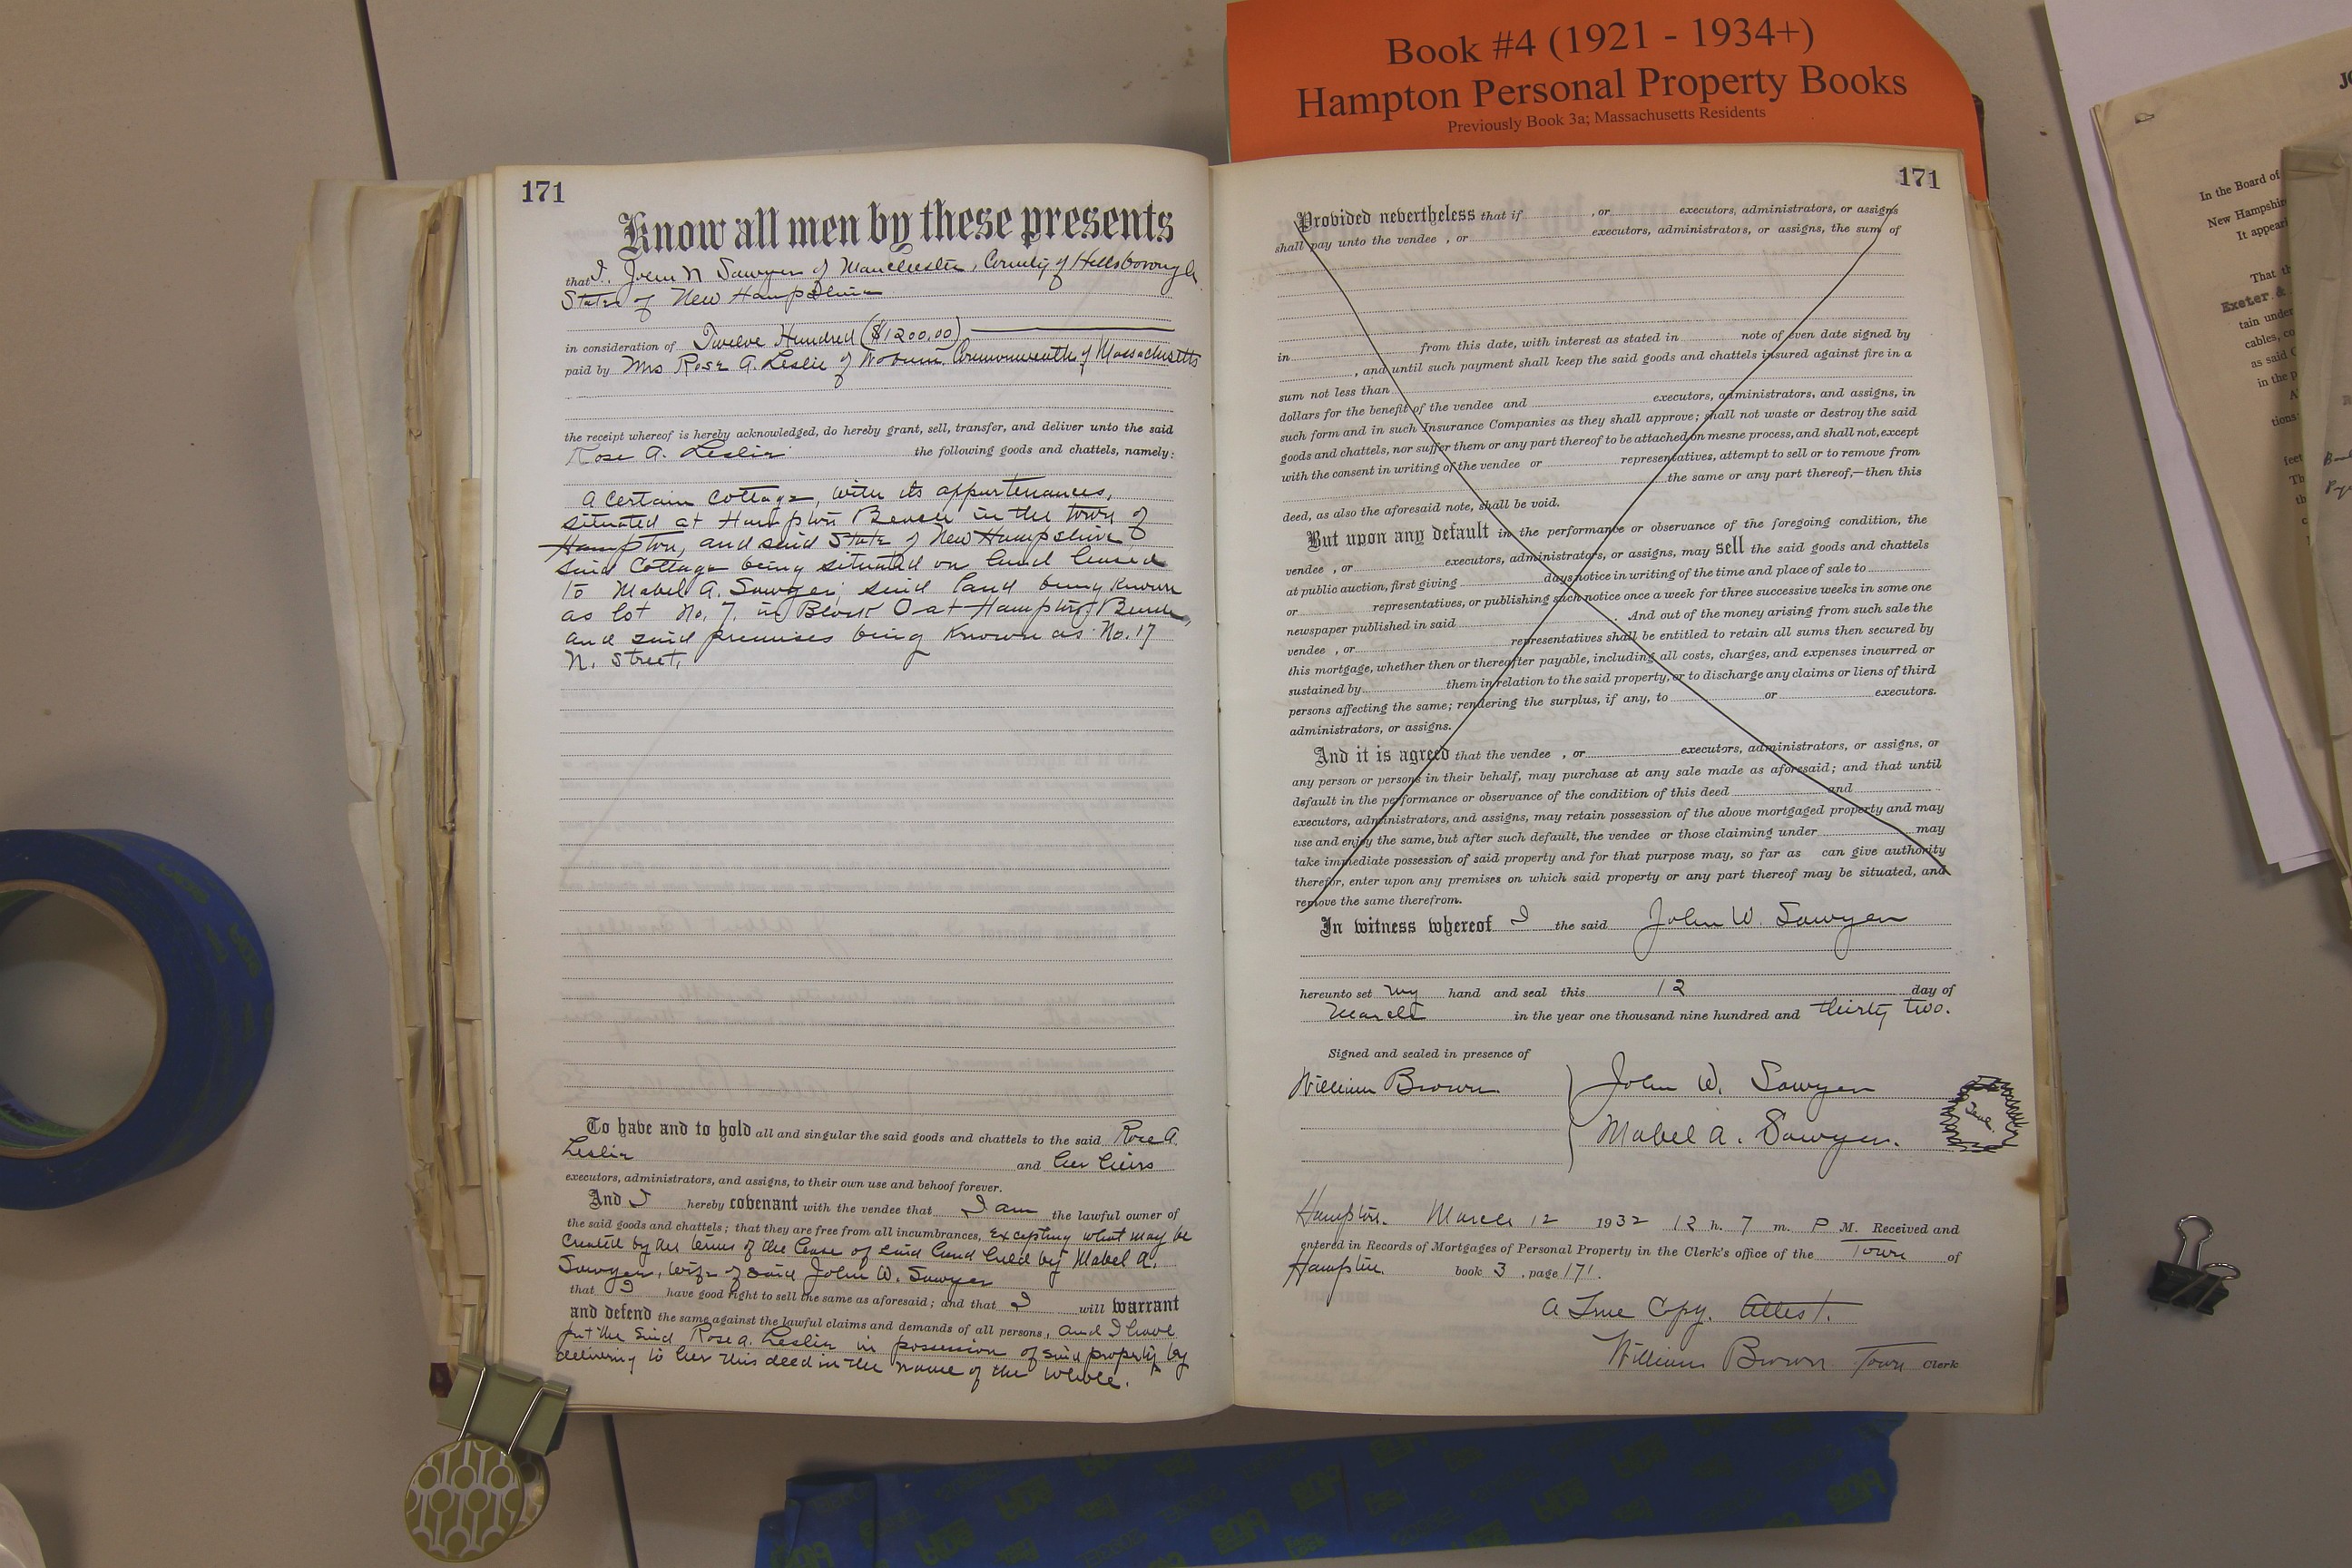 Book #4 (1921 - 1934+)
Hampton Personal Property Books
Previously Book 3a; Massachusetts Residents
171
Know all men by these presents
that I, John N Sawyer of Manchester, County of Hillsborough
State of New Hampshire
in consideration of Twelve Hundred ($1200,00)
paid by Mrs Rose A. Leslie of Woburn, Commonwealth of Massachusetts
the receipt whereof is hereby acknowledged, do hereby grant, sell, transfer, and deliver unto the said
Rose A. Leslie the following goods and chattels, namely:
A certain Cottage, with its appurtenances,
situated at Hampton Beach in the town of
Hampton, and said State of New Hampshire
said Cottage being situated on land leased
to Mabel A. Sawyer; said land being known
as lot No. 7, in Block O at Hampton Beach,
and said premises being known as No. 17
N. Street,
To have and to hold all and singular the said goods and chattels to the said Rose A.
Leslie and her heirs
executors, administrators, and assigns, to their own use and behoof forever.
And I hereby covenant with the vendee that I am the lawful owner of
the said goods and chattels; that they are free from all incumbrances, Excepting what may be
created by the terms of the lease of said land held by Mabel A.
Sawyer, wife of said John W. Sawyer
that I have good right to sell the same as aforesaid; and that I will warrant
and defend the same against the lawful claims and demands of all persons, and I have
put the said Rose A. Leslie in possession of said property by
delivering to her this deed in the name of the whole.
171
Provided nevertheless that if , or executors, administrators, or assigns
shall pay unto the vendee , or executors, administrators, or assigns, the sum of
in from this date, with interest as stated in note of even date signed by
, and until such payment shall keep the said goods and chattels insured against fire in a
sum not less than
dollars for the benefit of the vendee and executors, administrators, and assigns, in
such form and in such Insurance Companies as they shall approve; shall not waste or destroy the said
goods and chattels, nor suffer them or any part thereof to be attached on mesne process, and shall not, except
with the consent in writing of the vendee or representatives, attempt to sell or to remove from
the same or any part thereof,—then this
deed, as also the aforesaid note, shall be void.
But upon any default in the performance or observance of the foregoing condition, the
vendee , or executors, administrators, or assigns, may sell the said goods and chattels
at public auction, first giving days notice in writing of the time and place of sale to
or representatives, or publishing such notice once a week for three successive weeks in some one
newspaper published in said . And out of the money arising from such sale the
vendee , or representatives shall be entitled to retain all sums then secured by
this mortgage, whether then or thereafter payable, including all costs, charges, and expenses incurred or
sustained by them in relation to the said property, or to discharge any claims or liens of third
persons affecting the same; rendering the surplus, if any, to or executors.
administrators, or assigns.
And it is agreed that the vendee , or executors, administrators, or assigns, or
any person or persons in their behalf, may purchase at any sale made as aforesaid; and that until
dsfault in the performance or observance of the condition of this deed and
executors, administrators, and assigns, may retain possession of the above mortgaged property and may
use and enjoy the same, but after such default, the vendee or those claiming under may
take immediate possession of said property and for that purpose may, so far as can give authority
therefor, enter upon any premises on which said property or any part thereof may be situated, and
remove the same therefrom.
In witness whereof I the said John W. Sawyer
hereunto set my hand and seal this 12 day of
March in the year one thousand nine hundred and thirty two.
Signed and sealed in presence of
William Brown John W. Sawyer
Mabel A. Sawyer.
Seal
Hampton. March 12 1932 12 h. 7 m. P M. Received and
entered in Records of Mortgages of Personal Property in the Clerk's office of the Town of
Hampton. book 3 , page 171.
A True Copy. Attest.
William Brown Town Clerk
In the Board of
New Hampshire
It appear
That th
Exeter &
tain under
cables, co
as said C
in the p
tions
feet